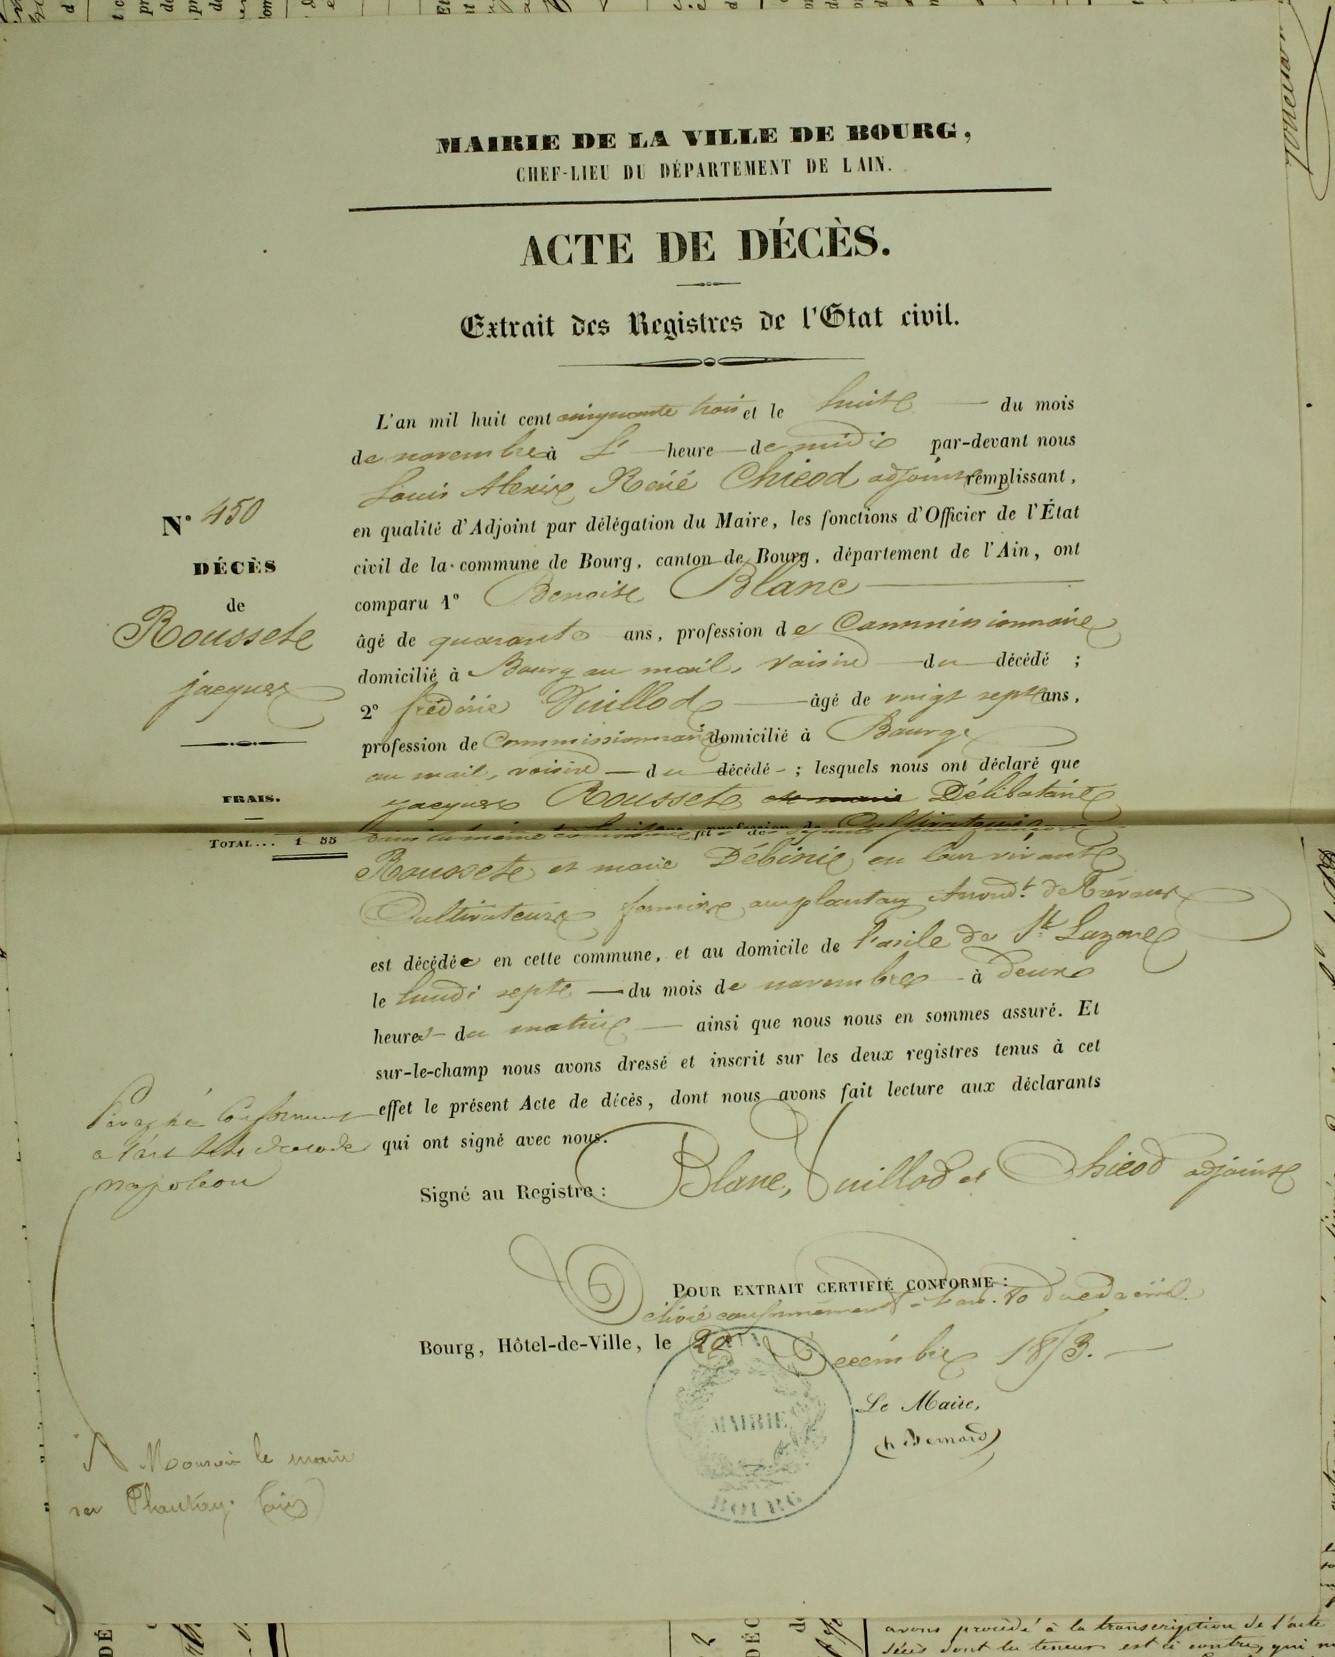 MAIRIE DE LA VILLE DE BOURG,
CHEF-LIEU DU DÉPARTEMENT DE L'AIN.
ACTE DE DÉCÈS.
Extrait des Registres de l'Etat civil.
L'an mil huit cent cinquante trois et le huit du mois
de novembre à heure de midi par-devant nous
Louis Alexis Réné Chicod adjoint remplissant,
en qualité d'Adjoint par délégation du Maire, les fonctions d'Officier de l'État
civil de la commune de Bourg, canton de Bourg, département de l'Ain, ont
comparu 1° Benoit Blanc
âgé de quarante ans, profession de Commissionnaire
domicilié à Bourg au mail, voisin du décédé ;
2° frédéric Vuillod âgé de vingt sept ans,
profession de Commissionnaire domicilié à Bourg
au mail, voisin du décédé ; lesquels nous ont déclaré que
jacques Rousset Célibataire
profession de
Rousset et marie en leur vivant
Cultivateurs au plantay Arrond.t de Trévoux
est décédé en cette commune, et au domicile de l'asile de St Lazare
le lundi sept du mois de novembre à deux
heures du matin ainsi que nous nous en sommes assuré. Et
sur-le-champ nous avons dressé et inscrit sur les deux registres tenus à cet
effet le présent Acte de décès, dont nous avons fait lecture aux déclarants
qui ont signé avec nous.
Signé au Registre : Blanc, Vuillod et Chicod adjoint
POUR EXTRAIT CERTIFIÉ CONFORME :
Délivré conformément à l'art. 80 du Code civil.
Bourg, Hôtel-de-Ville, le 29 Décembre 1853.
Le Maire,
Bernard
MAIRIE
BOURG
N° 450
DÉCÈS
de
Rousset
jacques
FRAIS.
TOTAL... 1 55
Paraphé Conformément
à l'art 44 du code
napoléon
A Monsieur le maire
Plantay. (ain)
avons procédé à la transcription de l'acte
décès dont la teneur est ci contre, qui